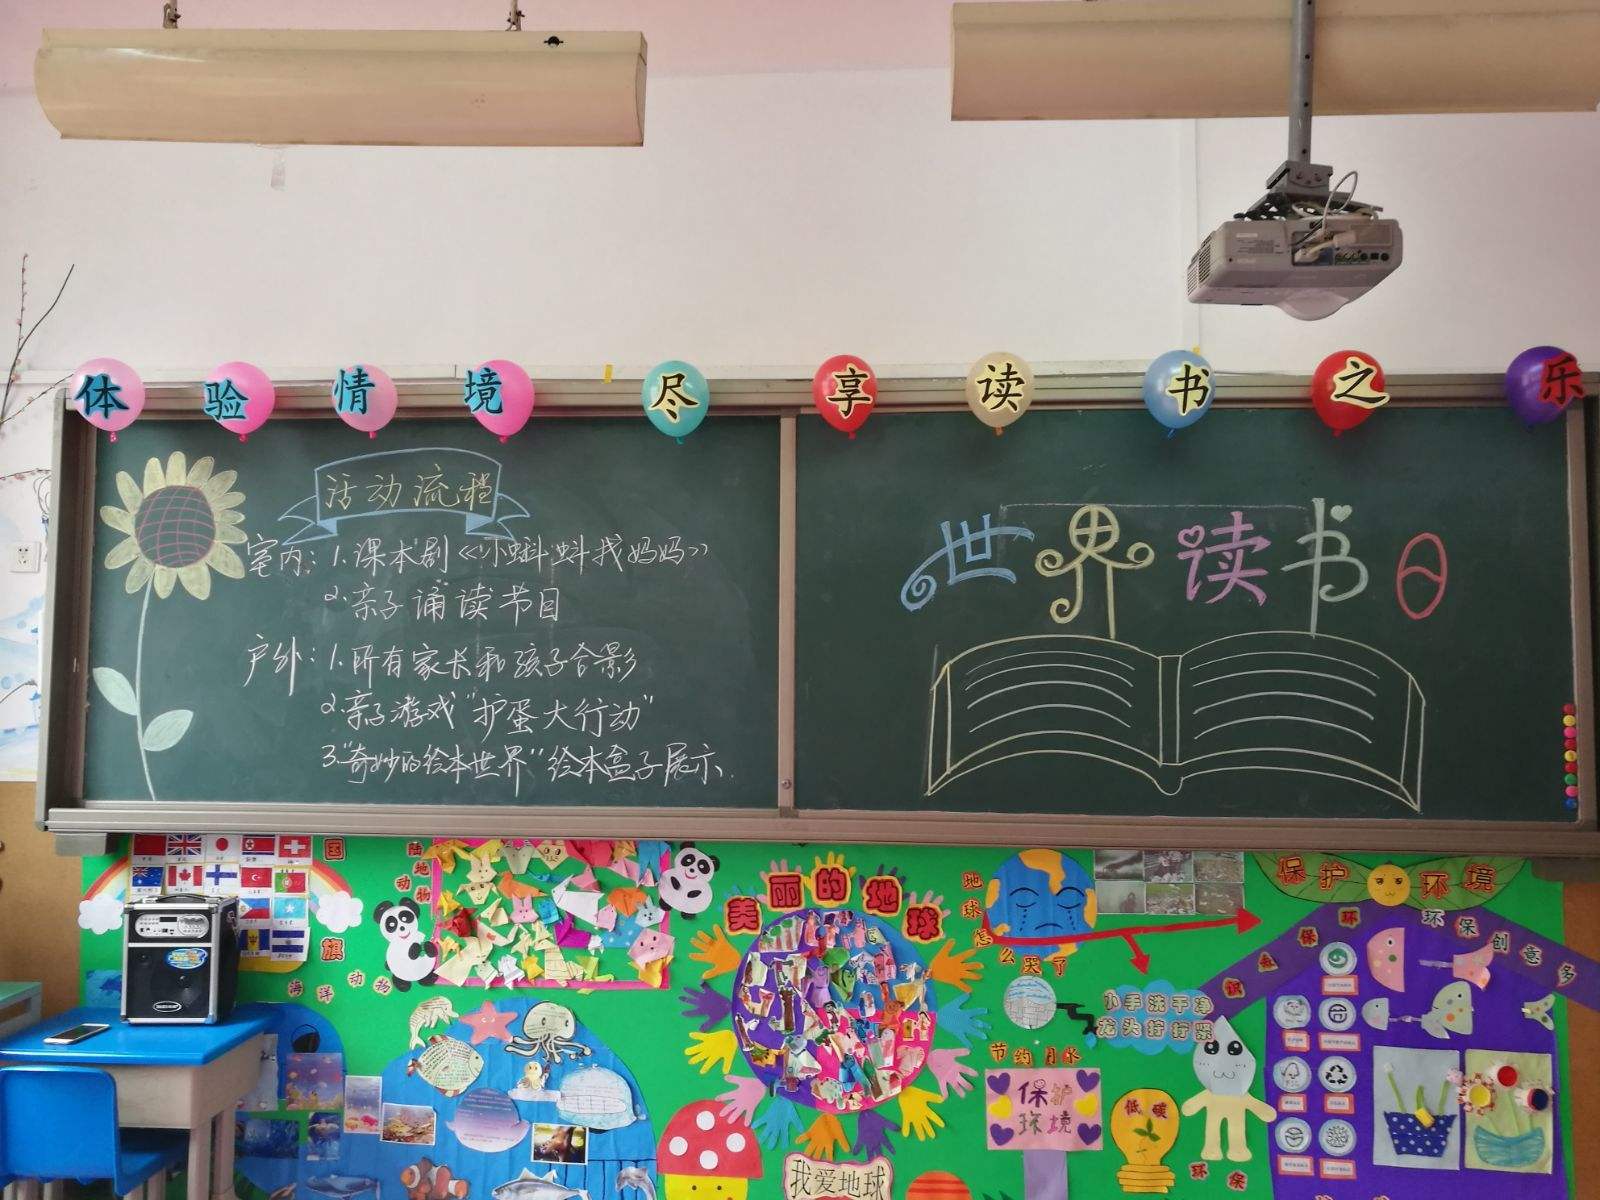 体验情境尽享读书之乐
活动流程
室内：1.课本剧《小蝌蚪找妈妈》
2.亲子诵读节目
户外：1.所有家长和孩子合影
2.亲子游戏“护蛋大行动”
3.“奇妙的绘本世界”绘本盒子展示.
世界读书日
国旗
陆地动物
海洋动物
美丽的地球
我爱地球
地球怎么哭了
小手洗干净
龙头拧拧紧
节约用水
保护
环境
低碳
环保
保护环境
环保标识
环保创意多